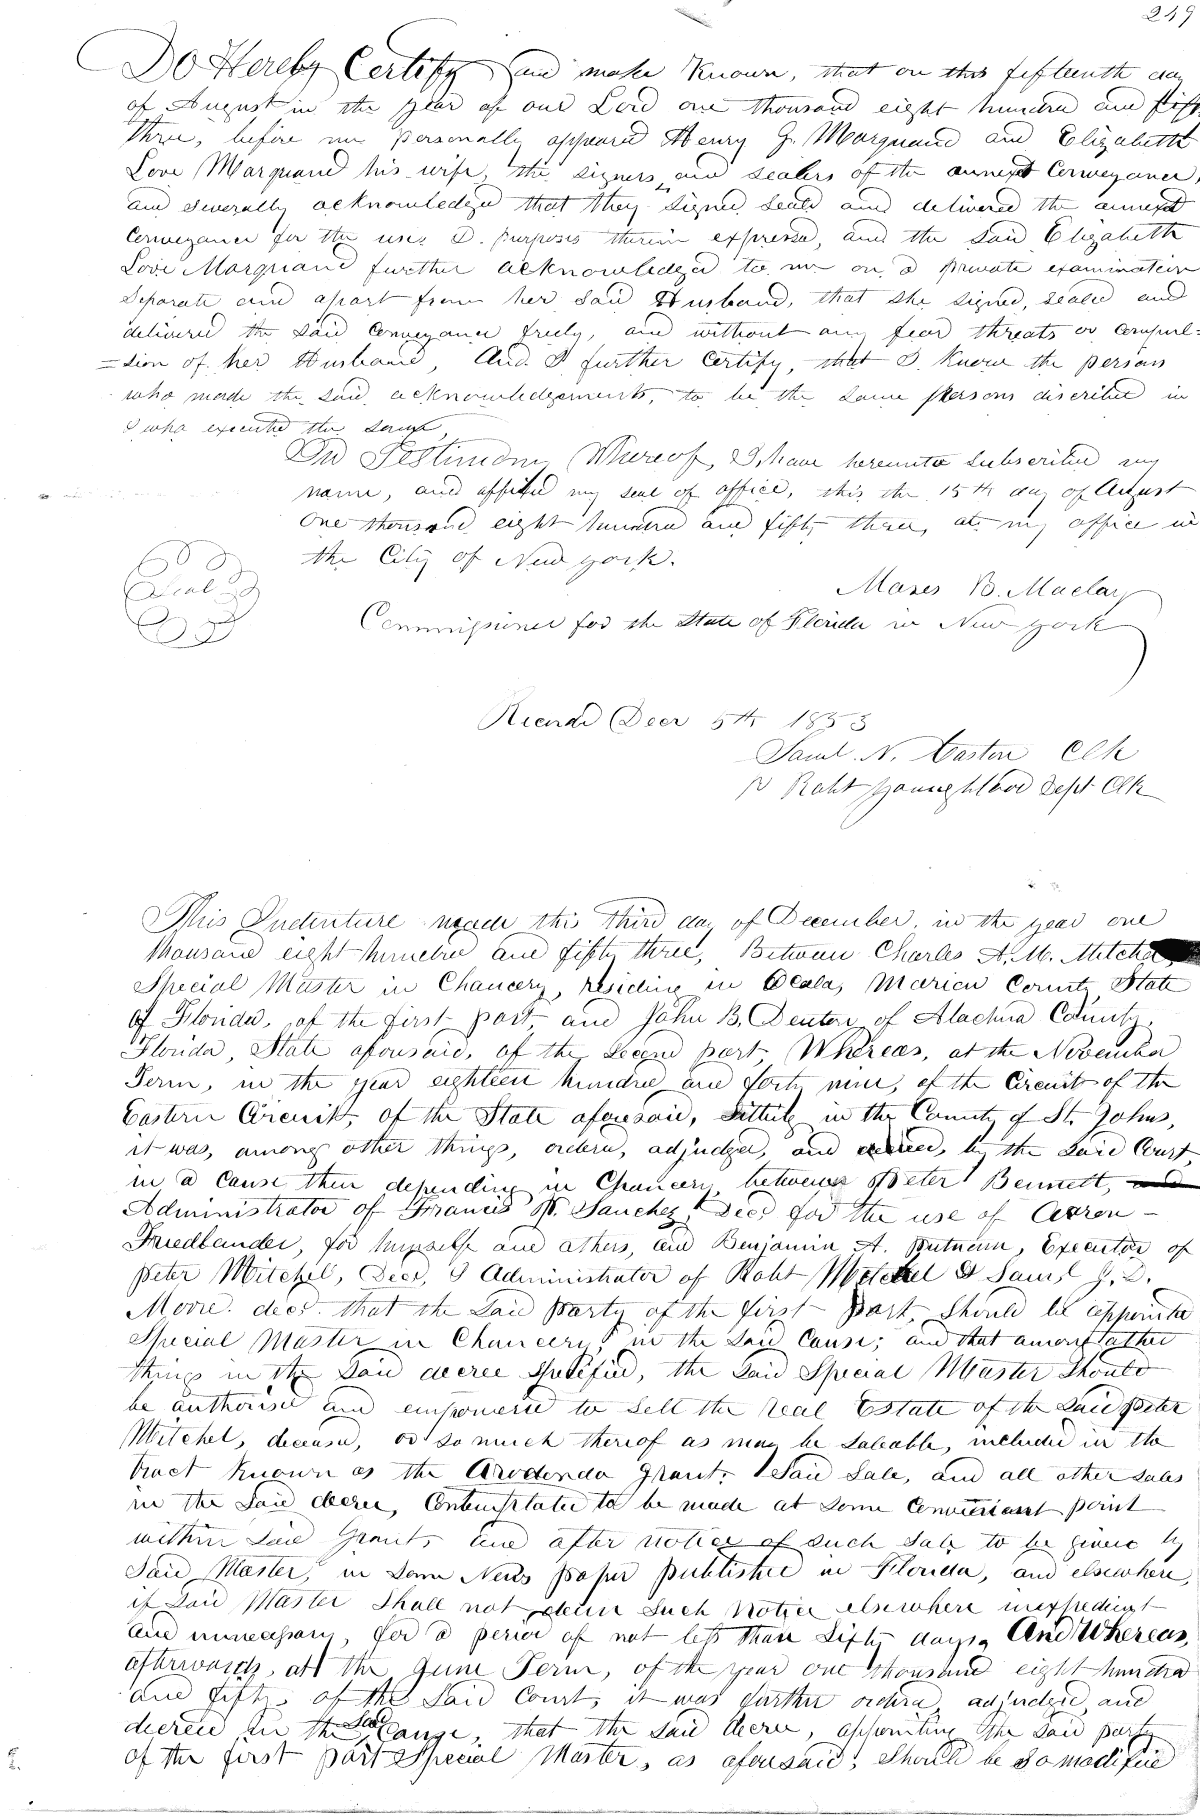 249
Do Hereby Certify and make Known, that on this fifteenth day
of August in the year of our Lord one thousand eight hundred and fifty
three, before me personally appeared Henry G. Marquand and Elizabeth
Love Marquand his wife, the signers and sealers of the annexed Conveyance,
and severally acknowledged that they signed seald and delivered the annexed
Conveyance for the uses & purposes therein expressd, and the Said Elizabeth
Love Marquand further acknowledged to me on a private examination
separate and apart from her Said Husband, that she signed, sealed and
delivered the said Conveyance freely, and without any fear threats or compul=
=sion of her Husband, And I further Certify, that I Know the persons
who made the said acknowledgements, to be the same persons discribed in
& who executed the same,
In Testimony Whereof, I have hereunto subscribed my
name, and affixed my seal of office, this the 15th day of August
One thousand eight hundred and fifty three, at my office in
the City of New York.
Seal
Moses B. Maclay
Commissioner for the State of Florida in New York
Recorded Decr 5th 1853
Saml. N. Caston Clk
Robt Youngblood Dept Clk
This Indenture made this Third day of December, in the year one
thousand eight hundred and fifty three, Between Charles A. M. Mitchel,
Special Master in Chancery, residing in Ocala, Marion County State
of Florida, of the first part, and John B. Denton, of Alachua County,
Florida, State aforesaid, of the Second part, Whereas, at the November
Term, in the year eighteen hundred and forty nine, of the Circuit of the
Eastern Circuit, of the State aforesaid, Sitting in the County of St. Johns,
it was, among other things, ordered, adjudged, and decreed, by the Said Court,
in a Cause then depending in Chancery, between Peter Bennett,
Administrator of Francis P. Sanchez, Decd for the use of Aaron
Friedlander, for himself and others, and Benjamin A. Putnam, Executor of
Peter Mitchel, Decd, & Administrator of Robt Mitchel & Saml J. D.
Moore. decd. that the Said party of the first part, Should be appointed
Special Master in Chancery, in the Said Cause; and that among other
things in the Said decree Specified, the Said Special Master Should
be authorised and empowered to Sell the real Estate of the Said Peter
Mitchel, deceased, or so much thereof as may be Saleable, included in the
tract Known as the Arredondo grant. Said Sale, and all other sales
in the Said decree, Contemplated to be made at some Convenient point
within Said Grant, and after notice of such Sale to be given by
Said Master, in Some News paper published in Florida, and elsewhere,
if Said Master Shall not deem Such Notice elsewhere inexpedient
and unnecessary, for a period of not less than Sixty days, And Whereas,
afterwards, at the June Term, of the year one thousand eight hundred
and fifty, of the Said Court, it was further ordered, adjudged, and
decreed in the Said Cause, that the Said decree, appointing the Said party
of the first part Special Master, as aforesaid, Should be So modified